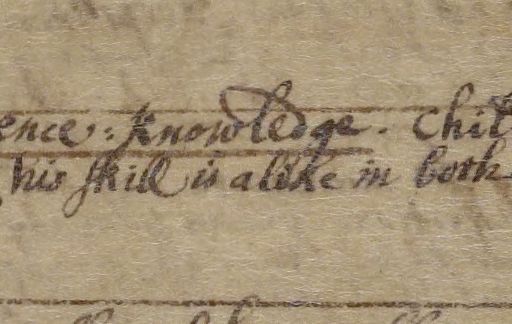 ence: Knowledge. Chil
his skill is alike in both